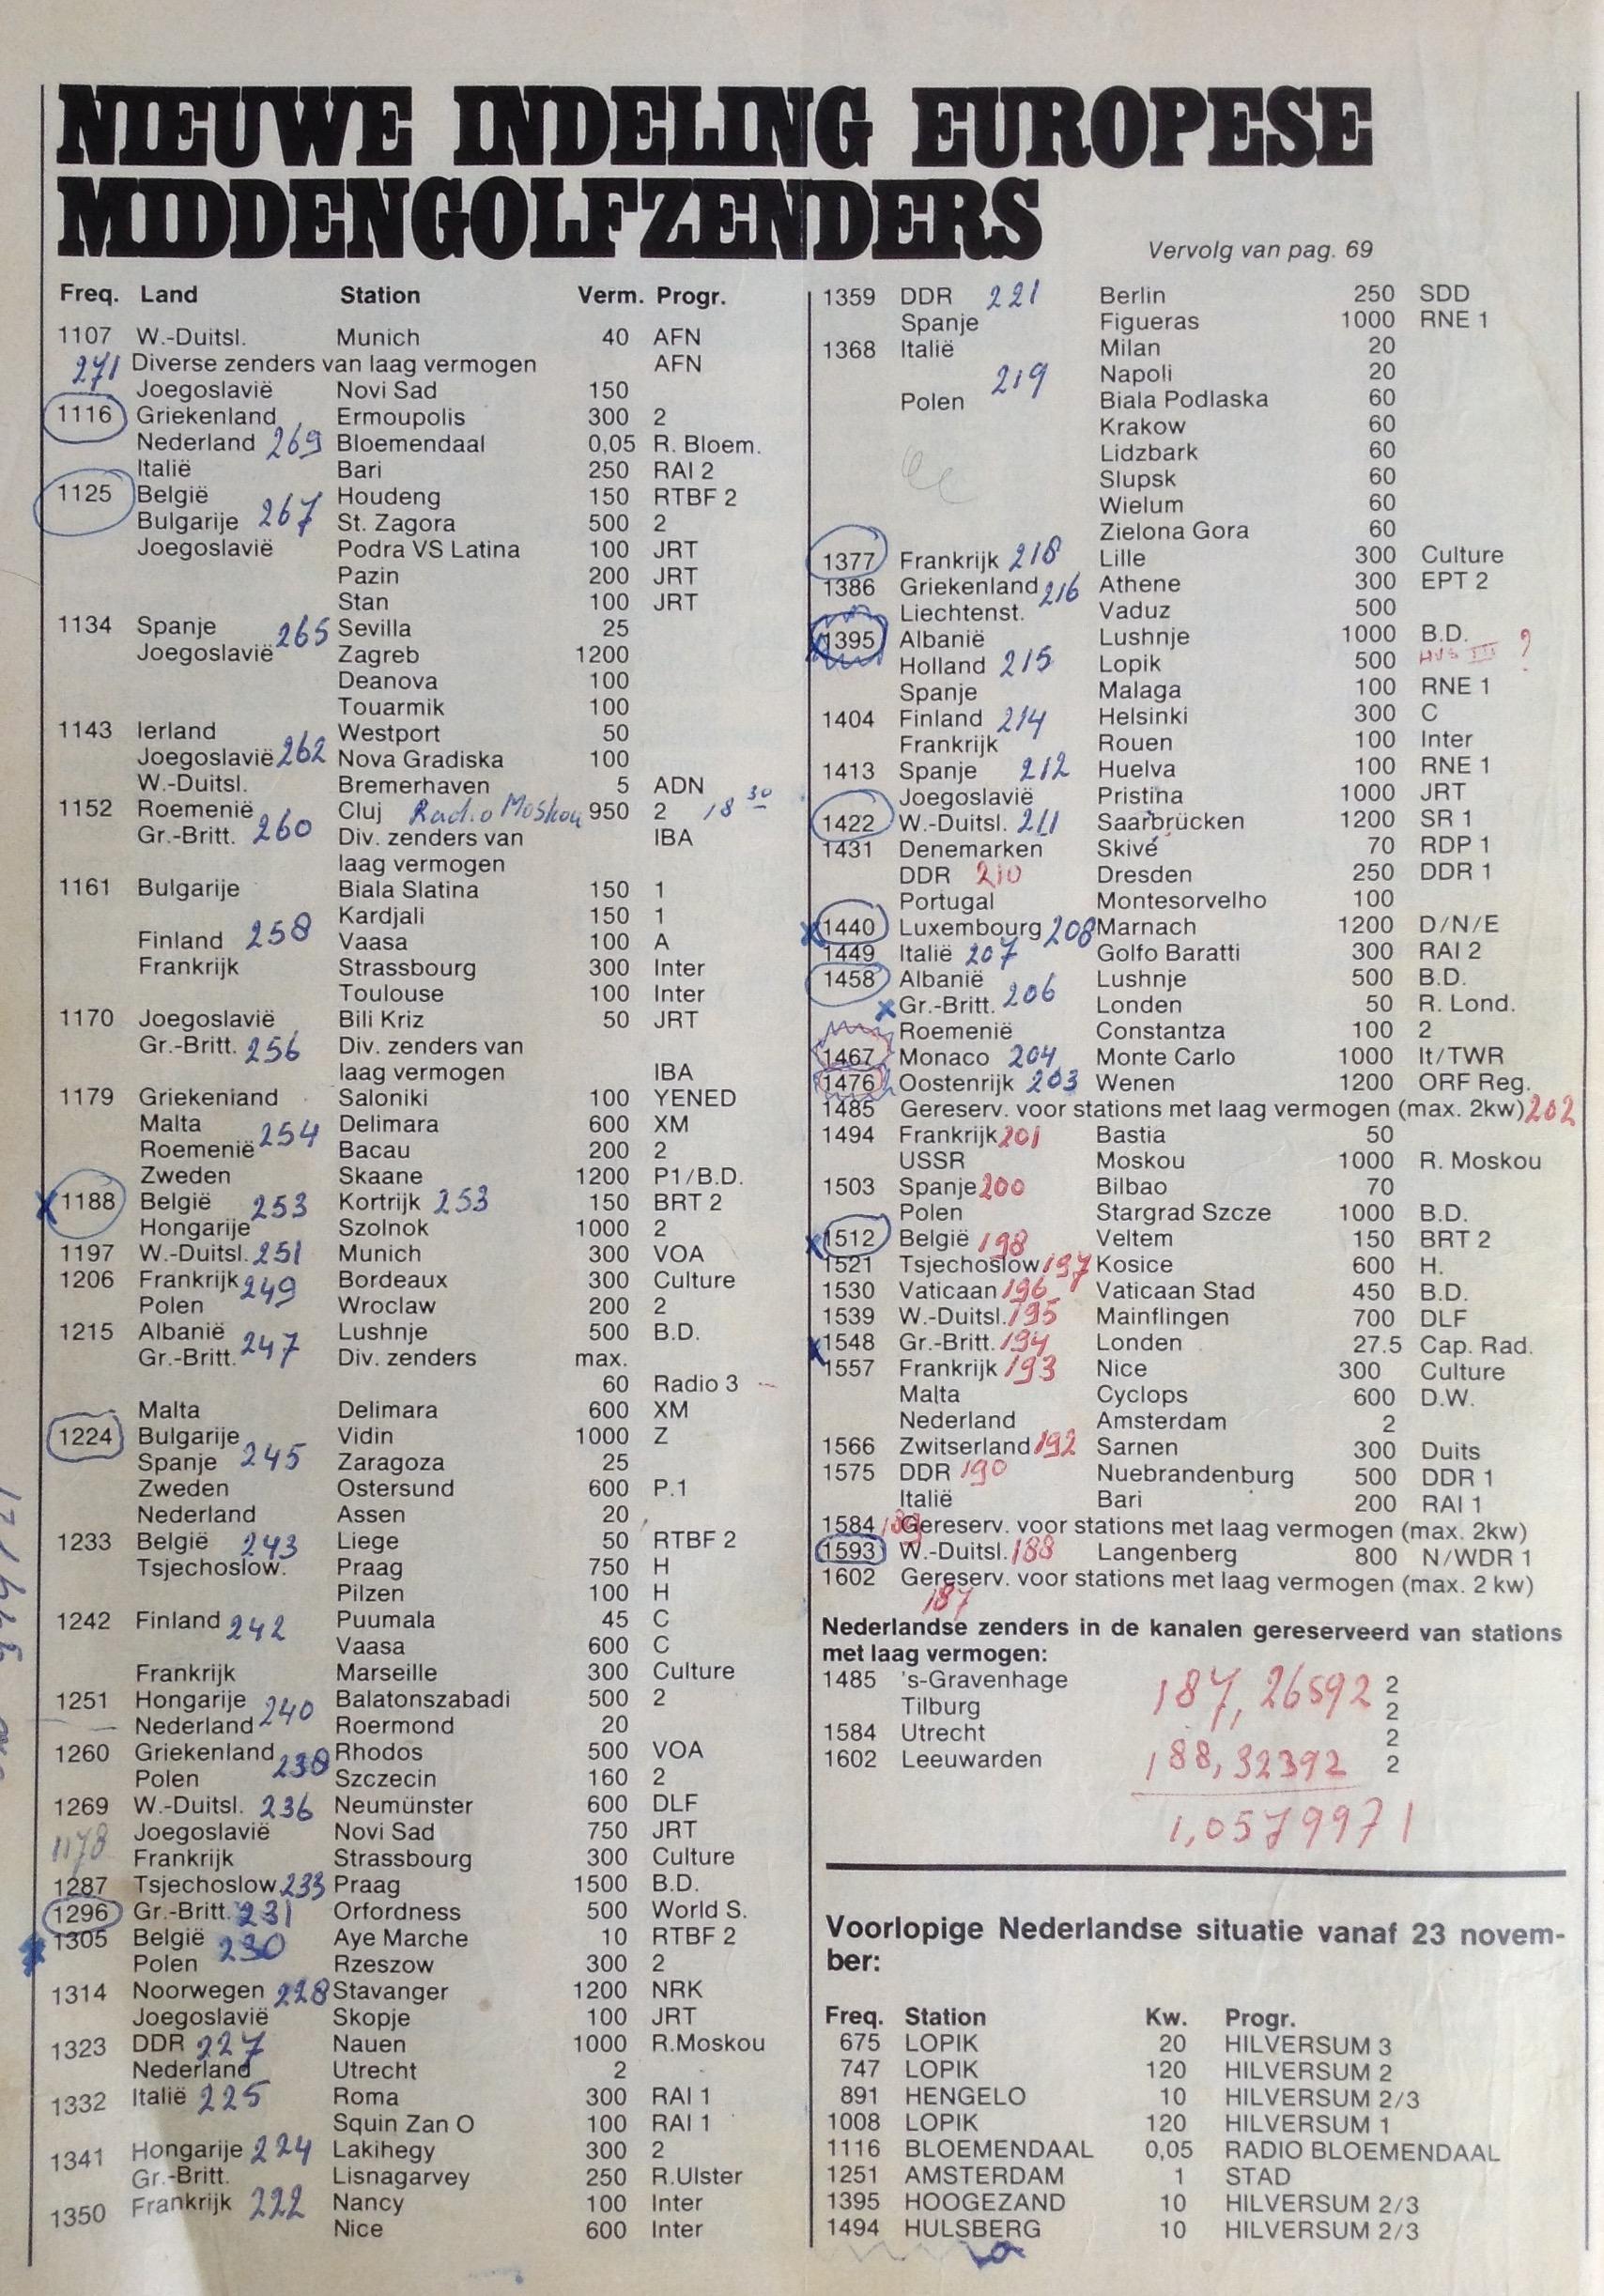 NIEUWE INDELING EUROPESE
MIDDENGOLFZENDERS
Vervolg van pag. 69
Freq. Land Station Verm. Progr.
1107 W.-Duitsl. Munich 40 AFN
271 Diverse zenders van laag vermogen AFN
Joegoslavië Novi Sad 150
1116 Griekenland Ermoupolis 300 2
Nederland 269 Bloemendaal 0,05 R. Bloem.
Italië Bari 250 RAI 2
1125 België Houdeng 150 RTBF 2
Bulgarije 267 St. Zagora 500 2
Joegoslavië Podra VS Latina 100 JRT
Pazin 200 JRT
Stan 100 JRT
1134 Spanje 265 Sevilla 25
Joegoslavië Zagreb 1200
Deanova 100
Touarmik 100
1143 Ierland Westport 50
Joegoslavië 262 Nova Gradiska 100
W.-Duitsl. Bremerhaven 5 ADN
1152 Roemenië Cluj Radio Moskou 950 2 18 30
Gr.-Britt. 260 Div. zenders van IBA
laag vermogen
1161 Bulgarije Biala Slatina 150 1
Kardjali 150 1
Finland 258 Vaasa 100 A
Frankrijk Strassbourg 300 Inter
Toulouse 100 Inter
1170 Joegoslavië Bili Kriz 50 JRT
Gr.-Britt. 256 Div. zenders van
laag vermogen IBA
1179 Griekenland Saloniki 100 YENED
Malta 254 Delimara 600 XM
Roemenië Bacau 200 2
Zweden Skaane 1200 P1/B.D.
x 1188 België 253 Kortrijk 253 150 BRT 2
Hongarije Szolnok 1000 2
1197 W.-Duitsl. 251 Munich 300 VOA
1206 Frankrijk 249 Bordeaux 300 Culture
Polen Wroclaw 200 2
1215 Albanië Lushnje 500 B.D.
Gr.-Britt. 247 Div. zenders max.
60 Radio 3
Malta Delimara 600 XM
1224 Bulgarije Vidin 1000 Z
Spanje 245 Zaragoza 25
Zweden Ostersund 600 P.1
Nederland Assen 20
1233 België 243 Liege 50 RTBF 2
Tsjechoslow. Praag 750 H
Pilzen 100 H
1242 Finland 242 Puumala 45 C
Vaasa 600 C
Frankrijk Marseille 300 Culture
1251 Hongarije Balatonszabadi 500 2
Nederland 240 Roermond 20
1260 Griekenland 238 Rhodos 500 VOA
Polen Szczecin 160 2
1269 W.-Duitsl. 236 Neumünster 600 DLF
Joegoslavië Novi Sad 750 JRT
1178 Frankrijk Strassbourg 300 Culture
1287 Tsjechoslow. 233 Praag 1500 B.D.
1296 Gr.-Britt. 231 Orfordness 500 World S.
x 1305 België 230 Aye Marche 10 RTBF 2
Polen Rzeszow 300 2
1314 Noorwegen 228 Stavanger 1200 NRK
Joegoslavië Skopje 100 JRT
1323 DDR 227 Nauen 1000 R.Moskou
Nederland Utrecht 2
1332 Italië 225 Roma 300 RAI 1
Squin Zan O 100 RAI 1
1341 Hongarije 224 Lakihegy 300 2
Gr.-Britt. Lisnagarvey 250 R.Ulster
1350 Frankrijk 222 Nancy 100 Inter
Nice 600 Inter
1359 DDR 221 Berlin 250 SDD
Spanje Figueras 1000 RNE 1
1368 Italië Milan 20
219 Napoli 20
Polen Biala Podlaska 60
Krakow 60
Lidzbark 60
Slupsk 60
Wielum 60
Zielona Gora 60
1377 Frankrijk 218 Lille 300 Culture
1386 Griekenland 216 Athene 300 EPT 2
Liechtenst. Vaduz 500
1395 Albanië Lushnje 1000 B.D.
Holland 215 Lopik 500 HVS III ?
Spanje Malaga 100 RNE 1
1404 Finland 214 Helsinki 300 C
Frankrijk Rouen 100 Inter
1413 Spanje 212 Huelva 100 RNE 1
Joegoslavië Pristina 1000 JRT
1422 W.-Duitsl. 211 Saarbrücken 1200 SR 1
1431 Denemarken Skive 70 RDP 1
DDR 210 Dresden 250 DDR 1
Portugal Montesorvelho 100
x 1440 Luxembourg 208 Marnach 1200 D/N/E
1449 Italië 207 Golfo Baratti 300 RAI 2
1458 Albanië Lushnje 500 B.D.
x Gr.-Britt. 206 Londen 50 R. Lond.
Roemenië Constantza 100 2
1467 Monaco 204 Monte Carlo 1000 It/TWR
1476 Oostenrijk 203 Wenen 1200 ORF Reg.
1485 Gereserv. voor stations met laag vermogen (max. 2kw) 202
1494 Frankrijk 201 Bastia 50
USSR Moskou 1000 R. Moskou
1503 Spanje 200 Bilbao 70
Polen Stargrad Szcze 1000 B.D.
x 1512 België 198 Veltem 150 BRT 2
1521 Tsjechoslow 197 Kosice 600 H.
1530 Vaticaan 196 Vaticaan Stad 450 B.D.
1539 W.-Duitsl. 195 Mainflingen 700 DLF
x 1548 Gr.-Britt. 194 Londen 27.5 Cap. Rad.
1557 Frankrijk 193 Nice 300 Culture
Malta Cyclops 600 D.W.
Nederland Amsterdam 2
1566 Zwitserland 192 Sarnen 300 Duits
1575 DDR 190 Nuebrandenburg 500 DDR 1
Italië Bari 200 RAI 1
1584 189 Gereserv. voor stations met laag vermogen (max. 2kw)
1593 W.-Duitsl. 188 Langenberg 800 N/WDR 1
1602 Gereserv. voor stations met laag vermogen (max. 2 kw)
187
Nederlandse zenders in de kanalen gereserveerd van stations
met laag vermogen:
1485 's-Gravenhage 187,26592 2
Tilburg 2
1584 Utrecht 2
1602 Leeuwarden 188,32392 2
1,0579971
Voorlopige Nederlandse situatie vanaf 23 novem-
ber:
Freq. Station Kw. Progr.
675 LOPIK 20 HILVERSUM 3
747 LOPIK 120 HILVERSUM 2
891 HENGELO 10 HILVERSUM 2/3
1008 LOPIK 120 HILVERSUM 1
1116 BLOEMENDAAL 0,05 RADIO BLOEMENDAAL
1251 AMSTERDAM 1 STAD
1395 HOOGEZAND 10 HILVERSUM 2/3
1494 HULSBERG 10 HILVERSUM 2/3